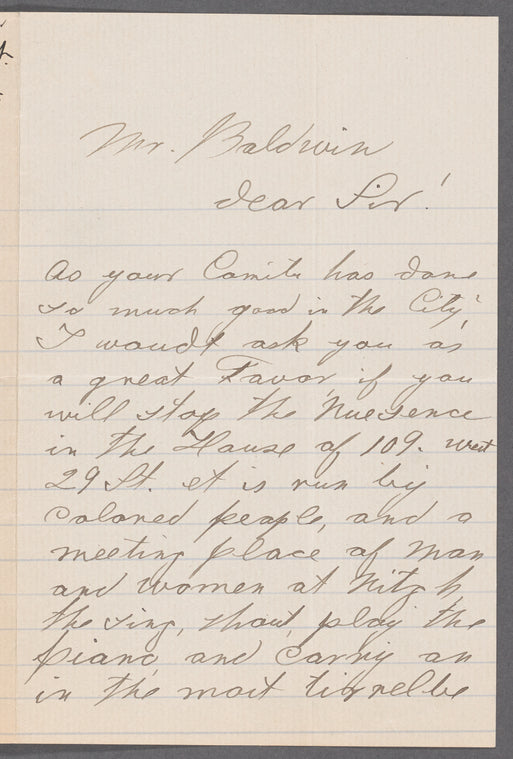 Mr. Baldwin
dear Sir!
As your Comite has done
so much good in the City,
I woudt ask you as
a great Favor, if you
will stop the Nuesence
in the House of 109. west
29 St. et is run by
Colored people, and a
meeting place of man
and women at Nitgh,
the sing, shout, play the
piano, and carrij an
in the most tirrelbe